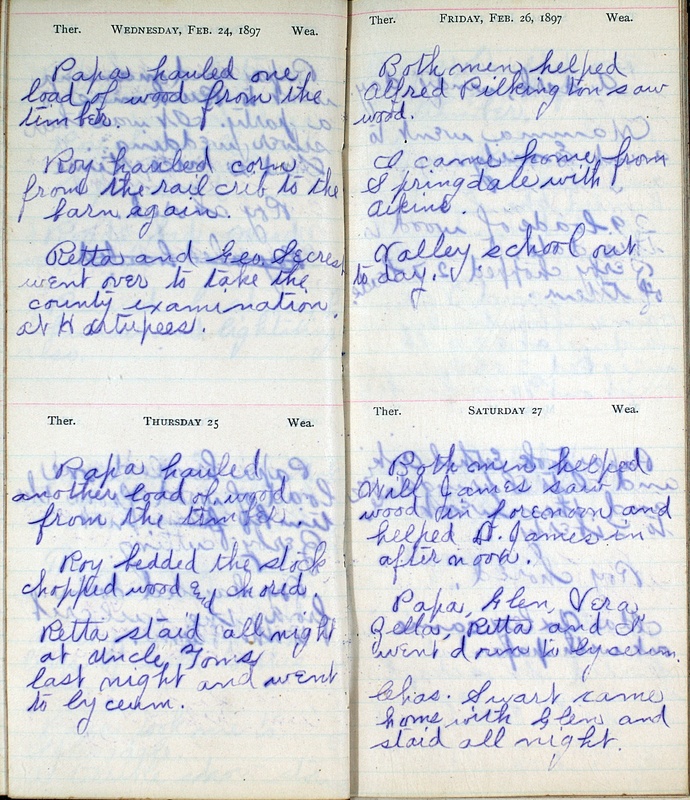 Ther. WEDNESDAY, FEB. 24, 1897 Wea.
Papa hauled one
load of wood from the
timber.
Roy hauled corn
from the rail crib to the
barn again.
Retta and Geo Secrest
went over to take the
county examination
at Hartupees.
Ther. THURSDAY 25 Wea.
Papa hauled
another load of wood
from the timber.
Roy bedded the stock
chopped wood and chored.
Retta staid all night
at Uncle Tom's
last night and went
to lyceum.
Ther. FRIDAY, FEB. 26, 1897 Wea.
Both men helped
Alfred Pilkington saw
wood.
I came home from
Springdale with
Aikins.
Valley school out
to day.
Ther. SATURDAY 27 Wea.
Both men helped
Will James saw
wood in forenoon and
helped D. James in
afternoon.
Papa, Glen, Vera,
Zella, Retta and I
went down to lyceum.
Chas. Swart came
home with Glen and
staid all night.